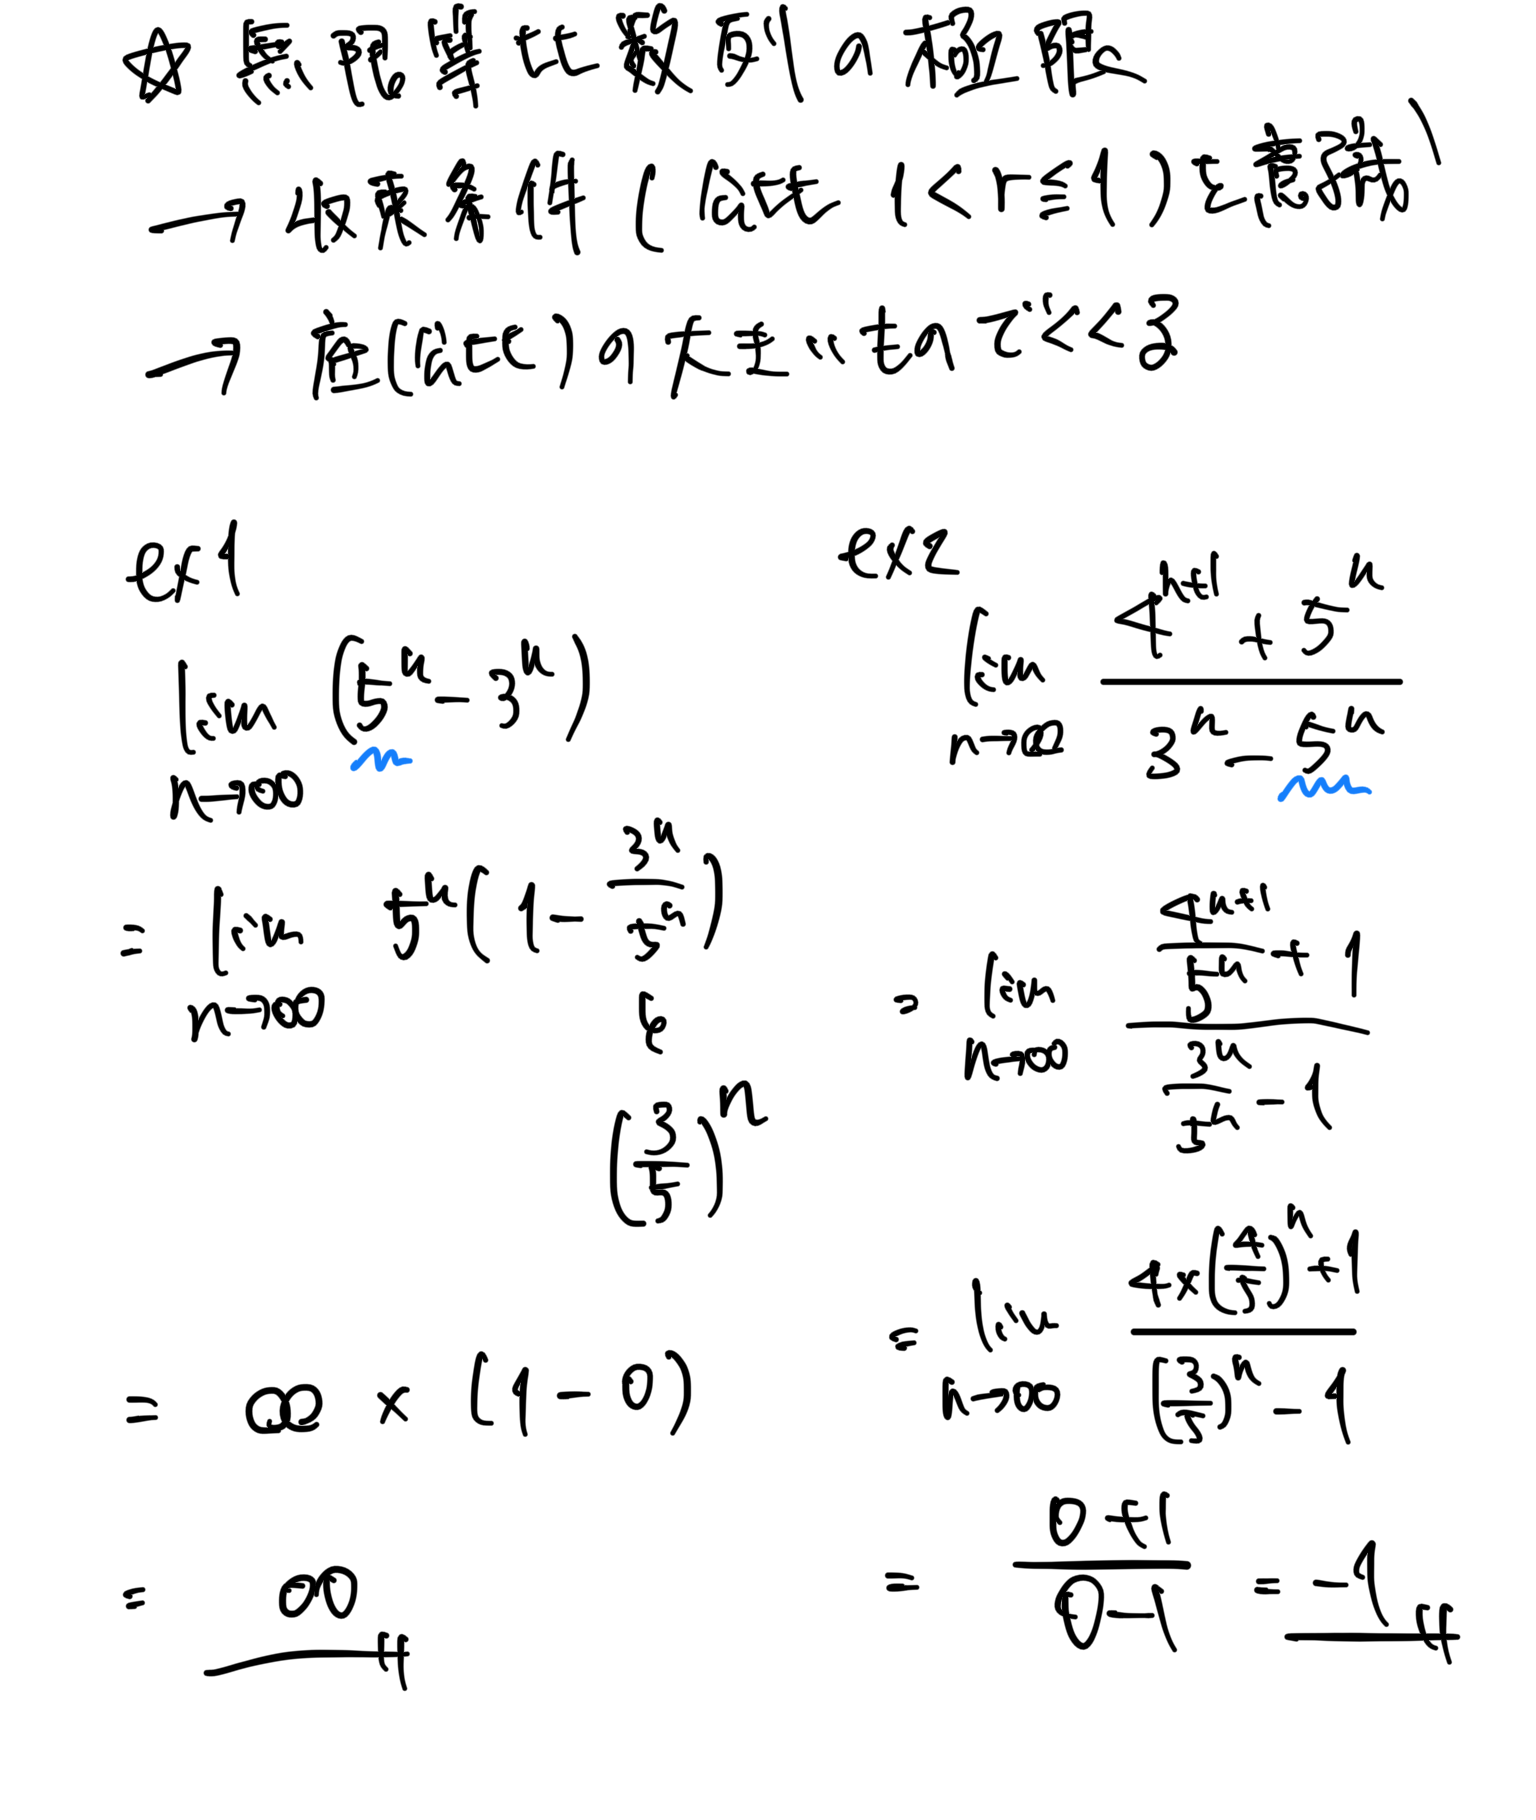 ☆ 無限等比数列の極限
→ 収束条件 (公比 1 < r ≦ 1) を意識
→ 底(公比)の大きいものでくくる
ex1
lim_{n→∞} (5^n - 3^n)
= lim_{n→∞} 5^n (1 - 3^n/5^n)
(3/5)^n
= ∞ × (1 - 0)
= ∞
ex2
lim_{n→∞} (4^{n+1} + 5^n)/(3^n - 5^n)
= lim_{n→∞} (4^{n+1}/5^n + 1)/(3^n/5^n - 1)
= lim_{n→∞} (4×(4/5)^n + 1)/((3/5)^n - 1)
= (0+1)/(0-1) = -1